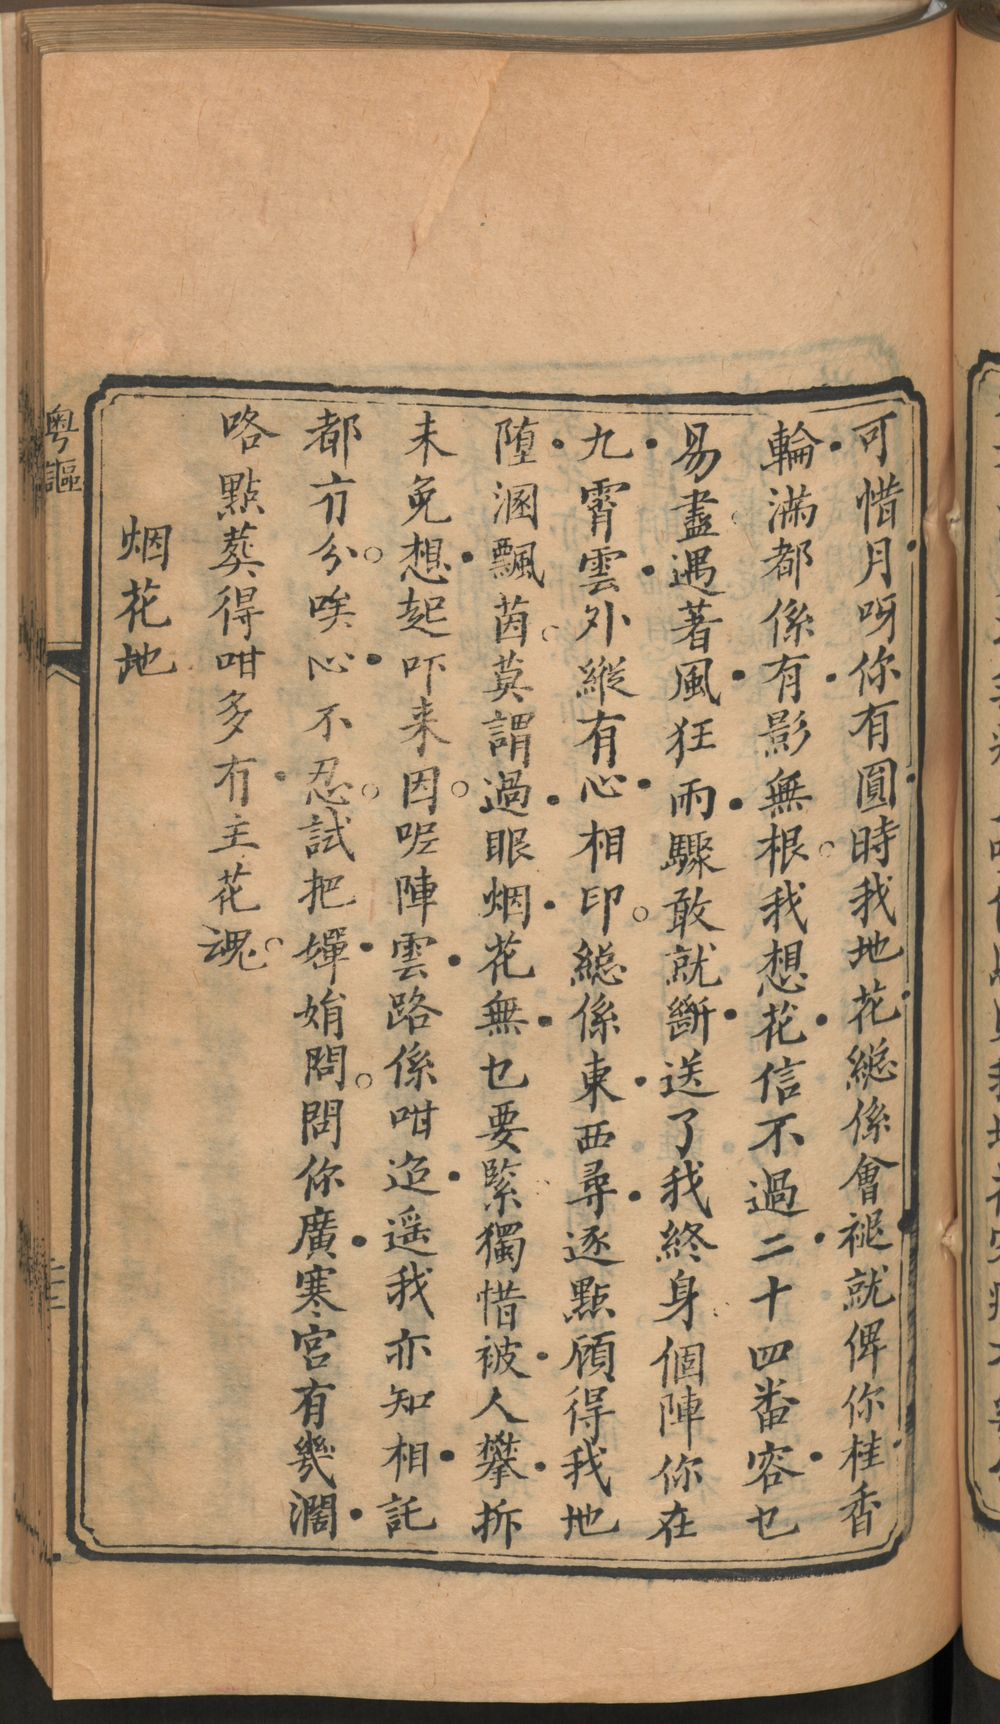 可惜月呀你有圓時我地花總係會褪就俾你桂香
輪滿都係有影無根我想花信不過二十四畨容乜
易盡遇著風狂雨驟敢就斷送了我終身個陣你在
九霄雲外縱有心相印總係東西尋逐點顧得我地
墮溷飄茵莫謂過眼烟花無乜要緊獨惜被人攀折
未免想起吓來因呢陣雲路係咁迢遥我亦知相託
都冇分唉心不忍試把嬋娟問問你廣寒宮有幾濶
咯點葬得咁多冇主花魂
烟花地
粤謳